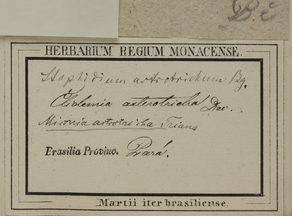 HERBARIUM REGIUM MONACENSE.
Staphidium astrotrichum Bg.
Clidemia asterotricha Dec.
Miconia astrotricha Triana
Brasilia Provinc. Pará.
Martii iter brasiliense.